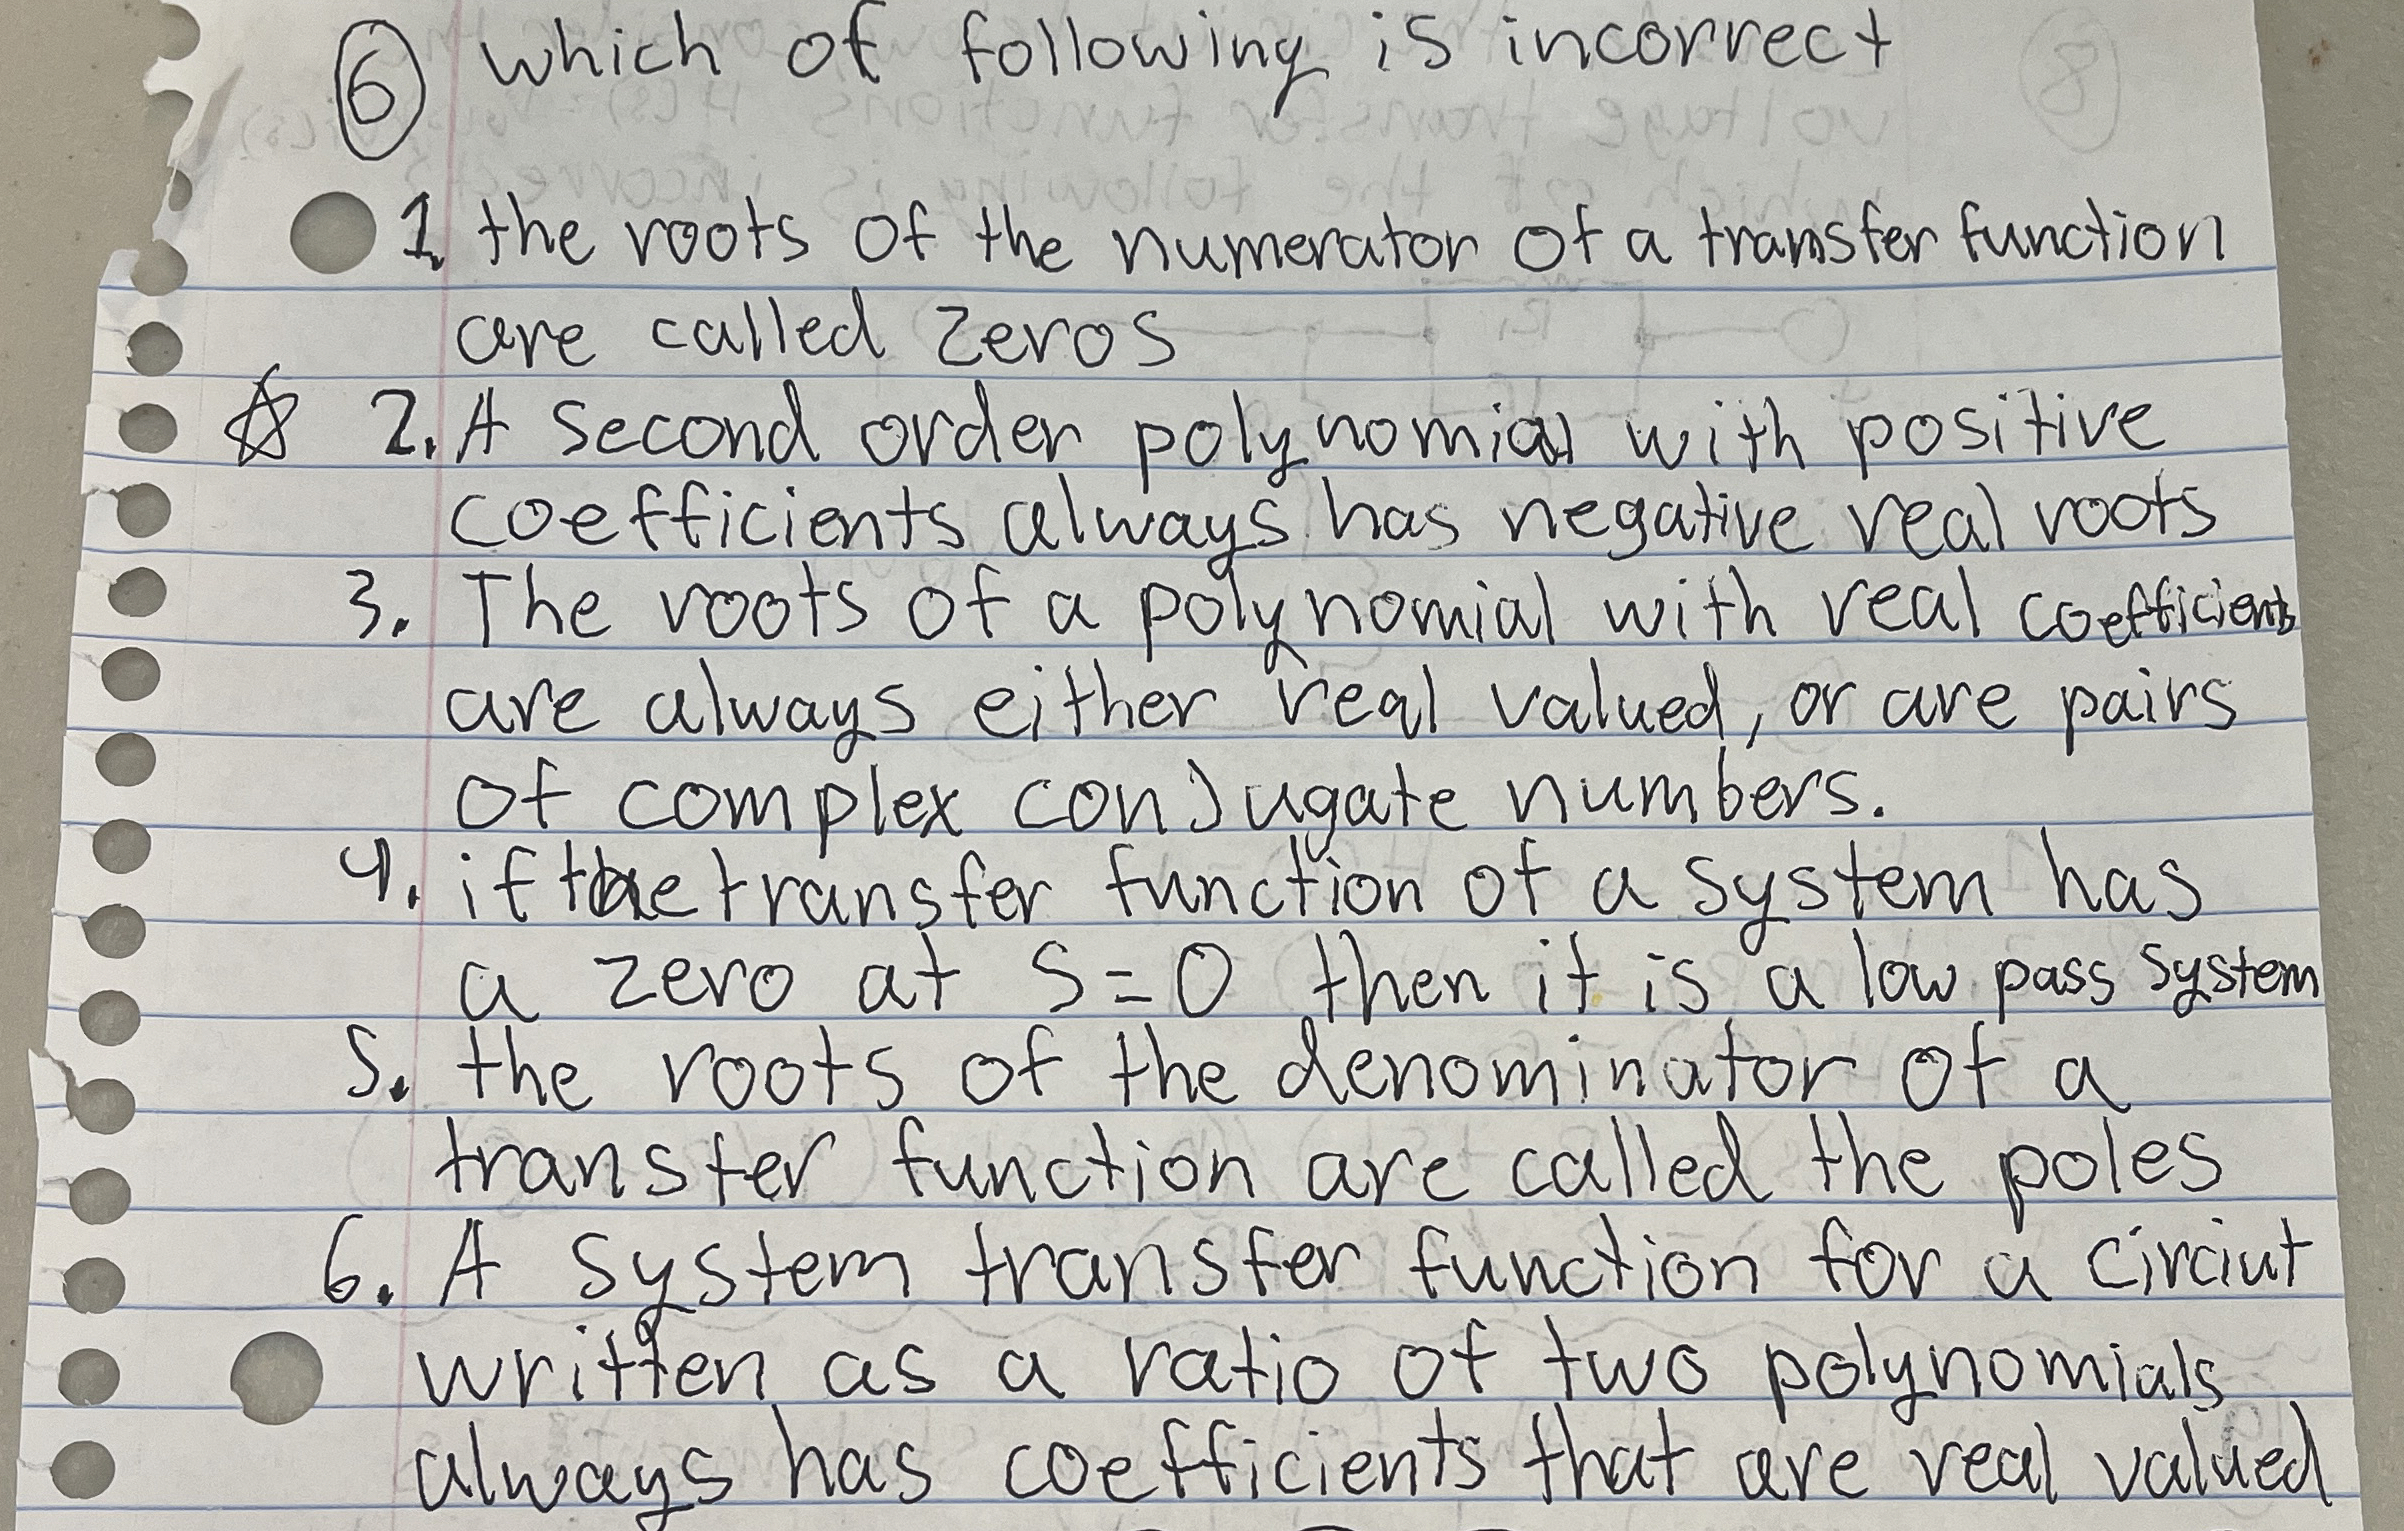 6 which of following is incorrect
1. the roots of the numerator of a transfer function
are called zeros
☆ 2. A second order polynomial with positive
coefficients always has negative real roots
3. The roots of a polynomial with real coefficients
are always either real valued, or are pairs
of complex conjugate numbers.
4. if the transfer function of a system has
a zero at s=0 then it is a low pass system
5. the roots of the denominator of a
transfer function are called the poles
6. A system transfer function for a circiut
written as a ratio of two polynomials
always has coefficients that are real valued